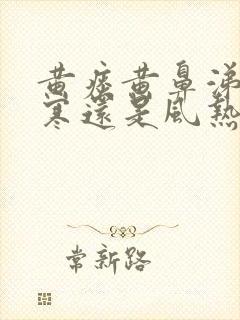 黄痰黄鼻涕
寒還是風熱
常新路